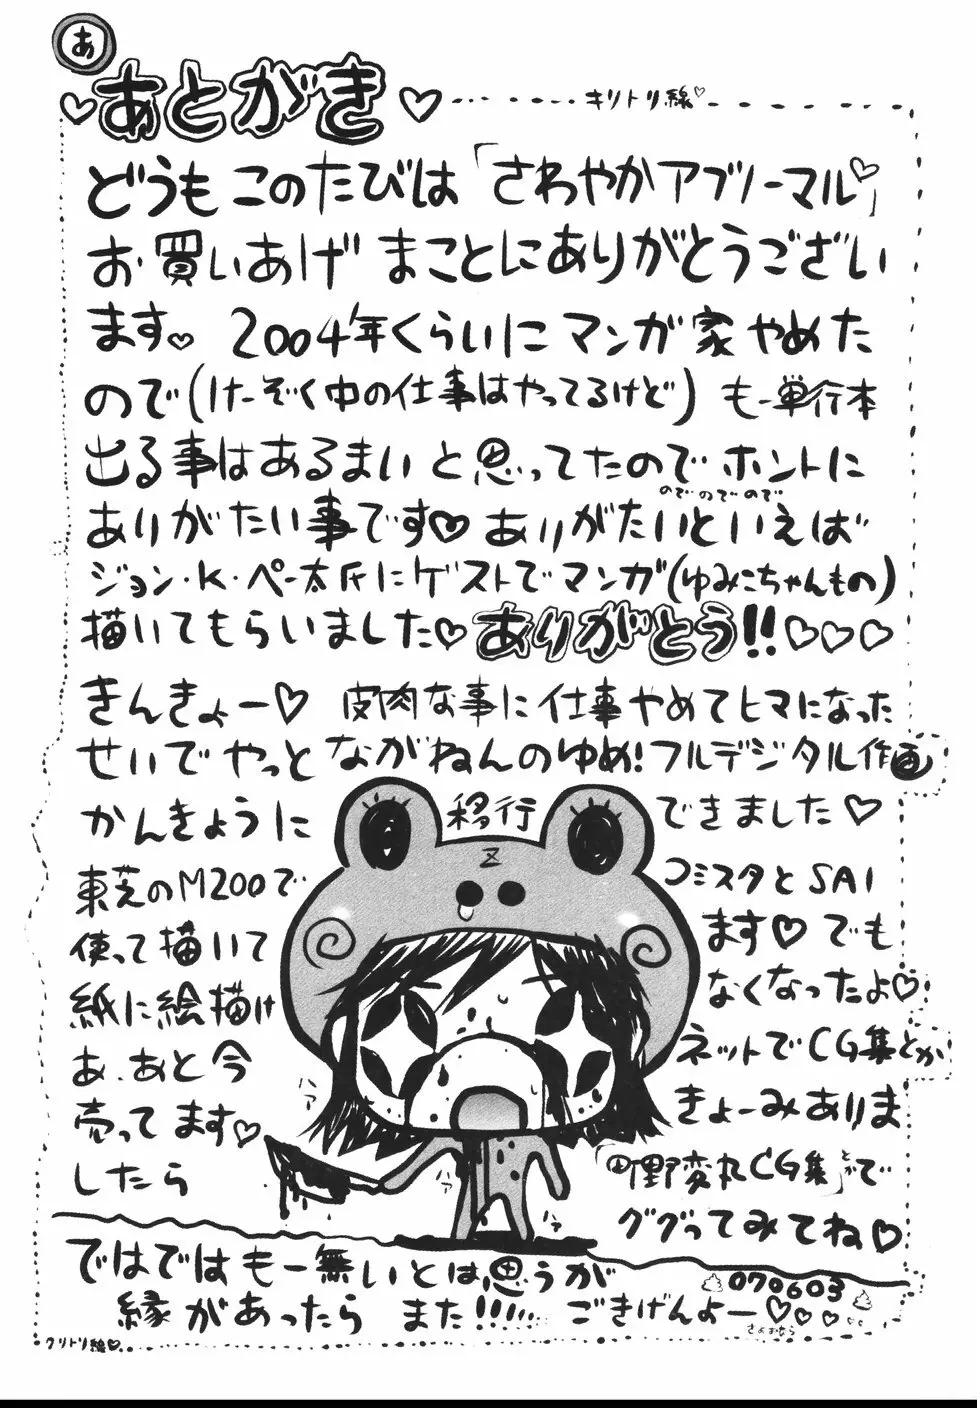 あ
あとがき
キリトリ線♡
どうもこのたびは「さわやかアブノーマル」
お買いあげ まことにありがとうござい
ます♡ 2004年くらいにマンガ家やめた
ので(けーぞく中の仕事はやってるけど)もー単行本
出る事はあるまいと思ってたのでホントに
のでのでので
ありがたい事です♡ ありがたいといえば
ジョン・K・ペー太氏にゲストでマンガ(ゆみこちゃんもの)
描いてもらいました♡ ありがとう!!♡♡♡
きんきょー♡ 皮肉な事に仕事やめてヒマになった
せいでやっとながねんのゆめ!フルデジタル作画
かんきょうに移行できました♡
東芝のM200でコミスタとSAI
使って描いてます♡でも
紙に絵描けなくなったよ♡
あ、あと今ネットでCG集とか
売ってます♡きょーみありま
したら「町野変丸CG集」とかで
ググってみてね♡
Z
ハァ
ハァ
ハァ
ではではもー無いとは思うが
縁があったら また!!!!! ごきげんよー♡♡♡♡
070603
さよおなら
クリトリ線♡